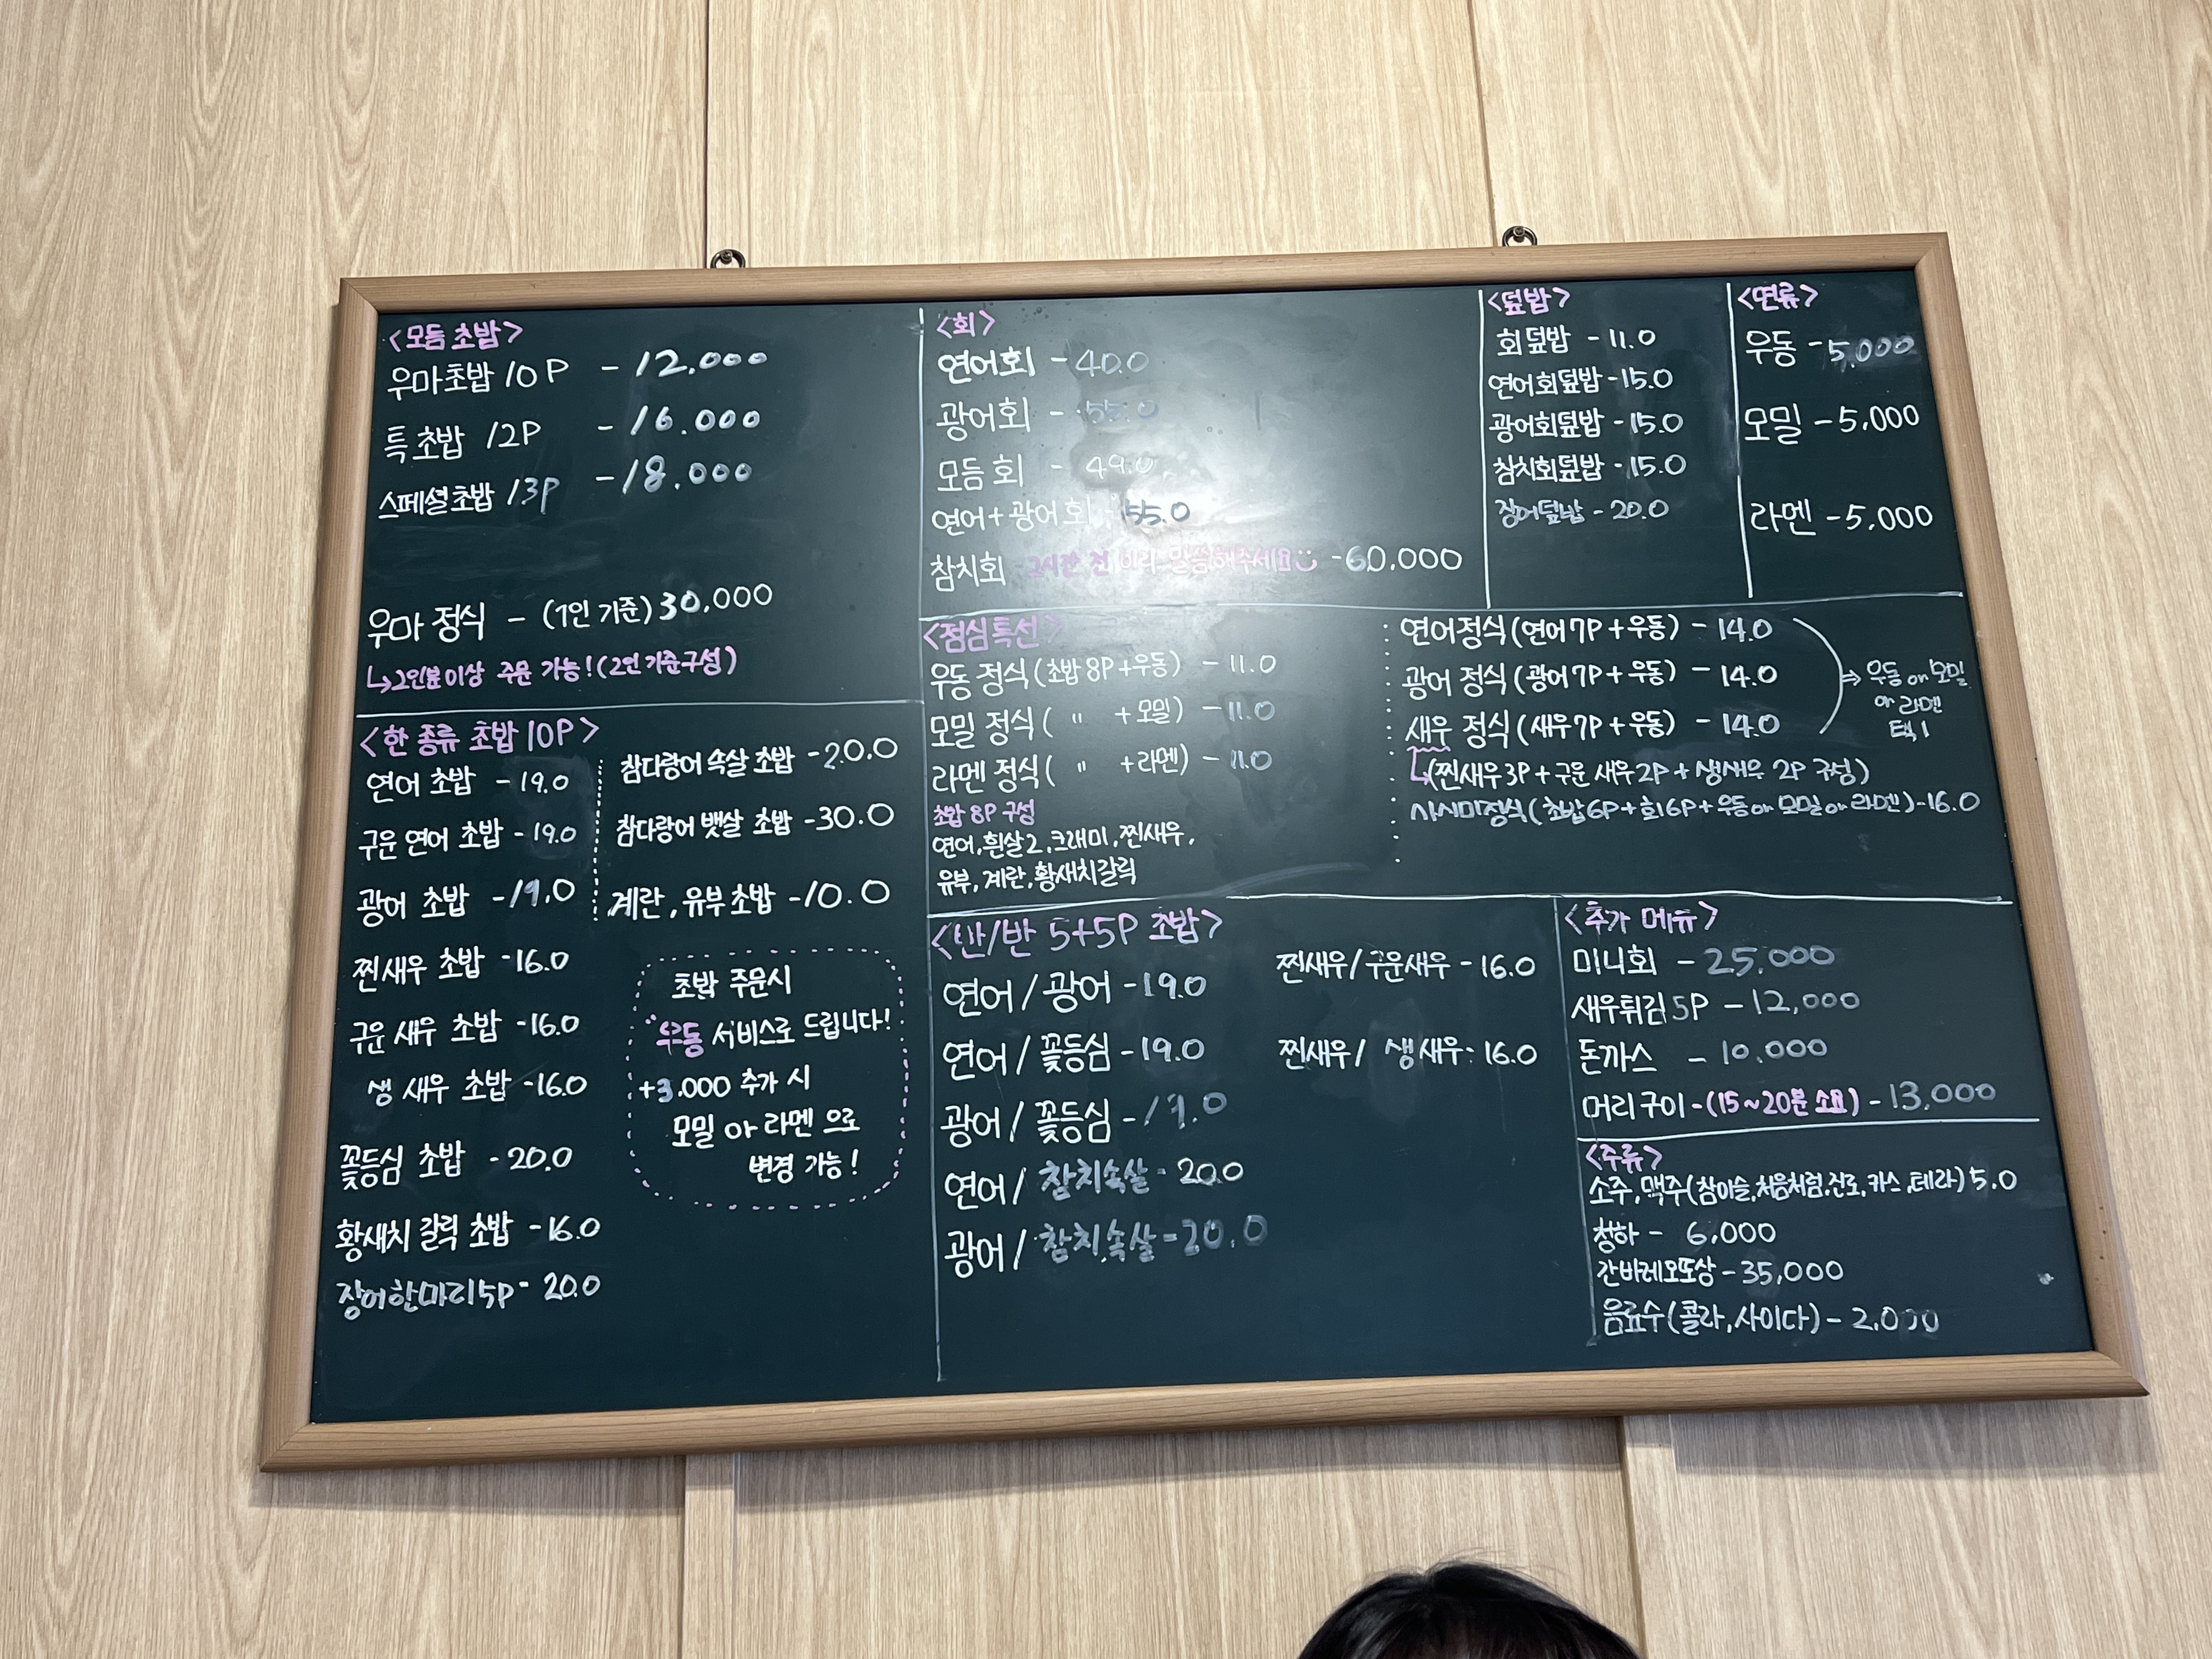 <모듬 초밥>
우마초밥 10P - 12.000
특초밥 12P - 16.000
스페셜초밥 13P - 18.000
우마 정식 - (1인 기준) 30,000
↳2인분이상 주문 가능! (2인 기준구성)
<한 종류 초밥 10P>
연어 초밥 - 19.0
구운 연어 초밥 - 19.0
광어 초밥 - 19.0
찐새우 초밥 - 16.0
구운 새우 초밥 - 16.0
생 새우 초밥 - 16.0
꽃등심 초밥 - 20.0
황새치 갈릭 초밥 - 16.0
장어한마리5P - 20.0
참다랑어 속살 초밥 - 20.0
참다랑어 뱃살 초밥 - 30.0
계란, 유부 초밥 - 10.0
초밥 주문시
우동 서비스로 드립니다!
+3.000 추가 시
모밀 or 라멘 으로
변경 가능!
<회>
연어회 - 40.0
광어회 - 55.0
모듬 회 - 49.0
연어+광어회 - 55.0
참치회 2시간 전 미리 말씀해주세요 - 60.000
<덮밥>
회덮밥 - 11.0
연어회덮밥 - 15.0
광어회덮밥 - 15.0
참치회덮밥 - 15.0
장어덮밥 - 20.0
<면류>
우동 - 5,000
모밀 - 5,000
라멘 - 5,000
<점심특선>
우동 정식 (초밥 8P + 우동) - 11.0
모밀 정식 ( " + 모밀) - 11.0
라멘 정식 ( " + 라멘) - 11.0
초밥 8P 구성
연어, 흰살2, 크래미, 찐새우,
유부, 계란, 황새치갈릭
연어정식 (연어7P + 우동) - 14.0
광어 정식 (광어7P + 우동) - 14.0
새우 정식 (새우7P + 우동) - 14.0
⇒ 우동 or 모밀
or 라멘
택1
↳(찐새우3P + 구운 새우2P + 생새우 2P 구성)
사시미정식 (초밥6P + 회6P + 우동 or 모밀 or 라멘) - 16.0
<반/반 5+5P 초밥>
연어 / 광어 - 19.0
연어 / 꽃등심 - 19.0
광어 / 꽃등심 - 19.0
연어 / 참치속살 - 20.0
광어 / 참치속살 - 20.0
찐새우 / 구운새우 - 16.0
찐새우 / 생새우 - 16.0
<추가 메뉴>
미니회 - 25.000
새우튀김 5P - 12,000
돈까스 - 10.000
머리구이 - (15~20분 소요) - 13,000
<주류>
소주, 맥주 (참이슬, 처음처럼, 진로, 카스, 테라) 5.0
청하 - 6,000
간바레오또상 - 35,000
음료수 (콜라, 사이다) - 2,000